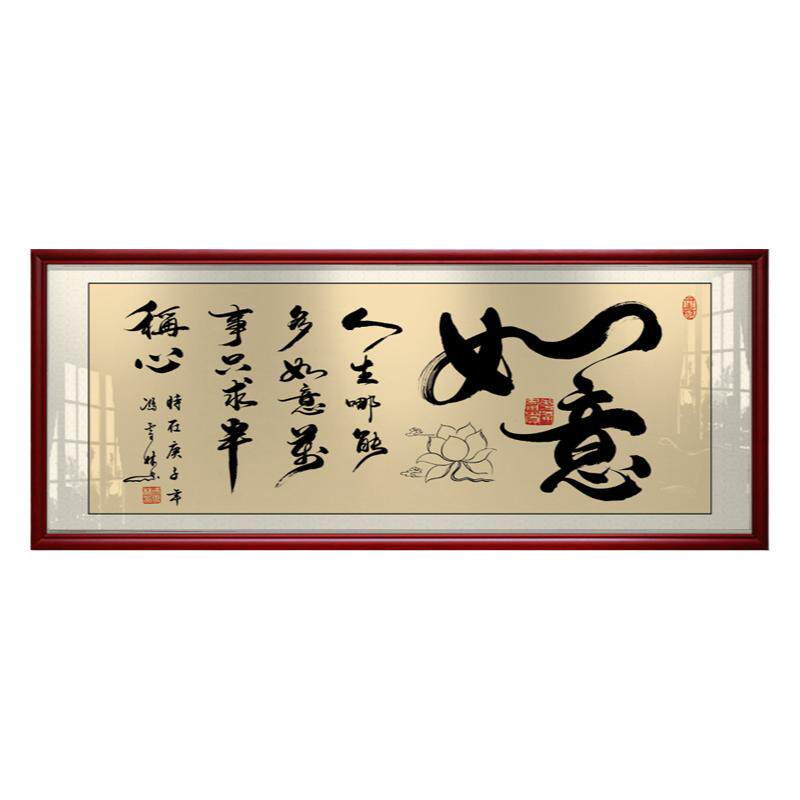 如意
人生哪能
多如意萬
事只求半
稱心
時在庚子年